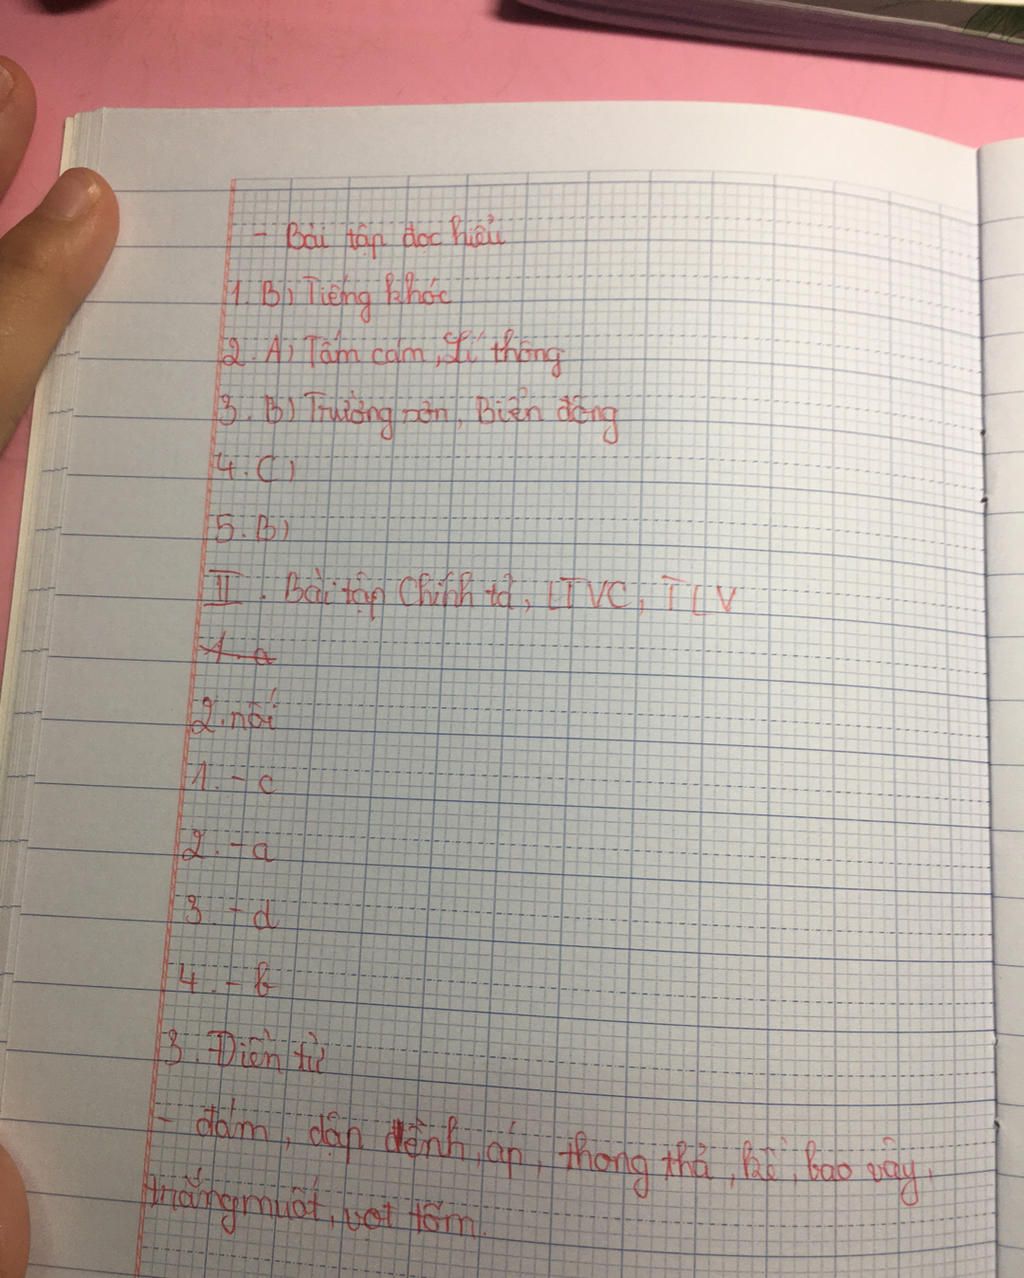 - Bài tập đọc hiểu
1. B) Tiếng khóc
2. A) Tấm cám, Lí thông
3. B) Trường sơn, Biển đông
4. C)
5. B)
II. Bài tập Chính tả, LTVC, TLV
1 a
2. nối
1. - c
2. - a
3. - d
4. - b
3. Điền từ
- đám, dập dềnh, áp, thong thả, bao vây,
trắng muốt, vọt tõm.